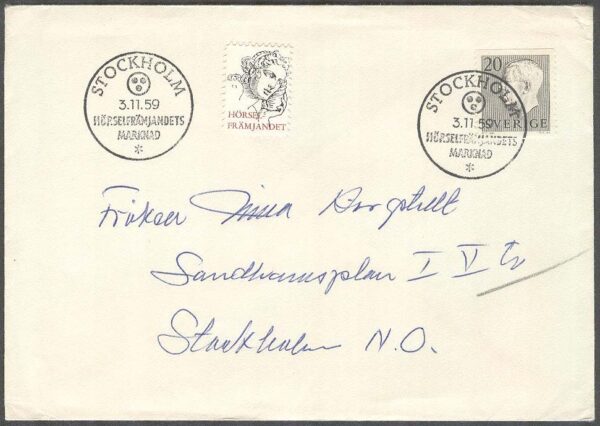 STOCKHOLM
3.11.59
HÖRSELFRÄMJANDETS
MARKNAD
*
HÖRSEL
FRÄMJANDET
20
SVERIGE
STOCKHOLM
3.11.59
HÖRSELFRÄMJANDETS
MARKNAD
*
Fröken
Sandhamnsplan I V
Stockholm N.O.